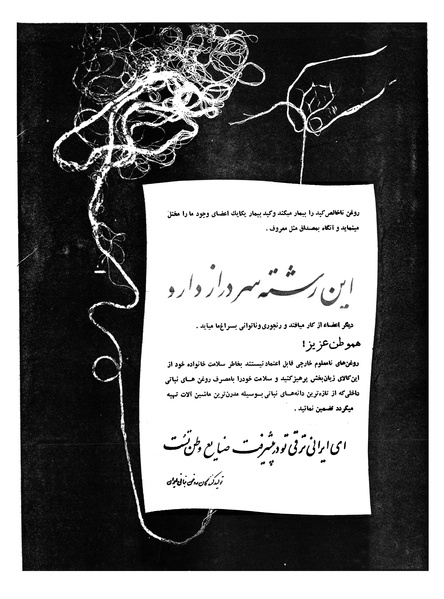 روغن ناخالص کبد را بیمار میکند و کبد بیمار یکایک اعضای وجود ما را مختل
مینماید و آنگاه بمصداق مثل معروف .
این رشته سر دراز دارد
دیگر اعضاء از کار میافتد و رنجوری و ناتوانی بسراغ ما میاید .
هموطن عزیز!
روغن‌های نامعلوم خارجی قابل اعتماد نیستند بخاطر سلامت خانواده خود از
این کالای زیان‌بخش پرهیز کنید و سلامت خود را بامصرف روغن های نباتی
داخلی که از تازه‌ترین دانه‌های نباتی بوسیله مدرن‌ترین ماشین آلات تهیه
میگردد تضمین نمائید .
ای ایرانی ترقی تو در پیشرفت صنایع وطن تست
تولید کنندگان روغن نباتی